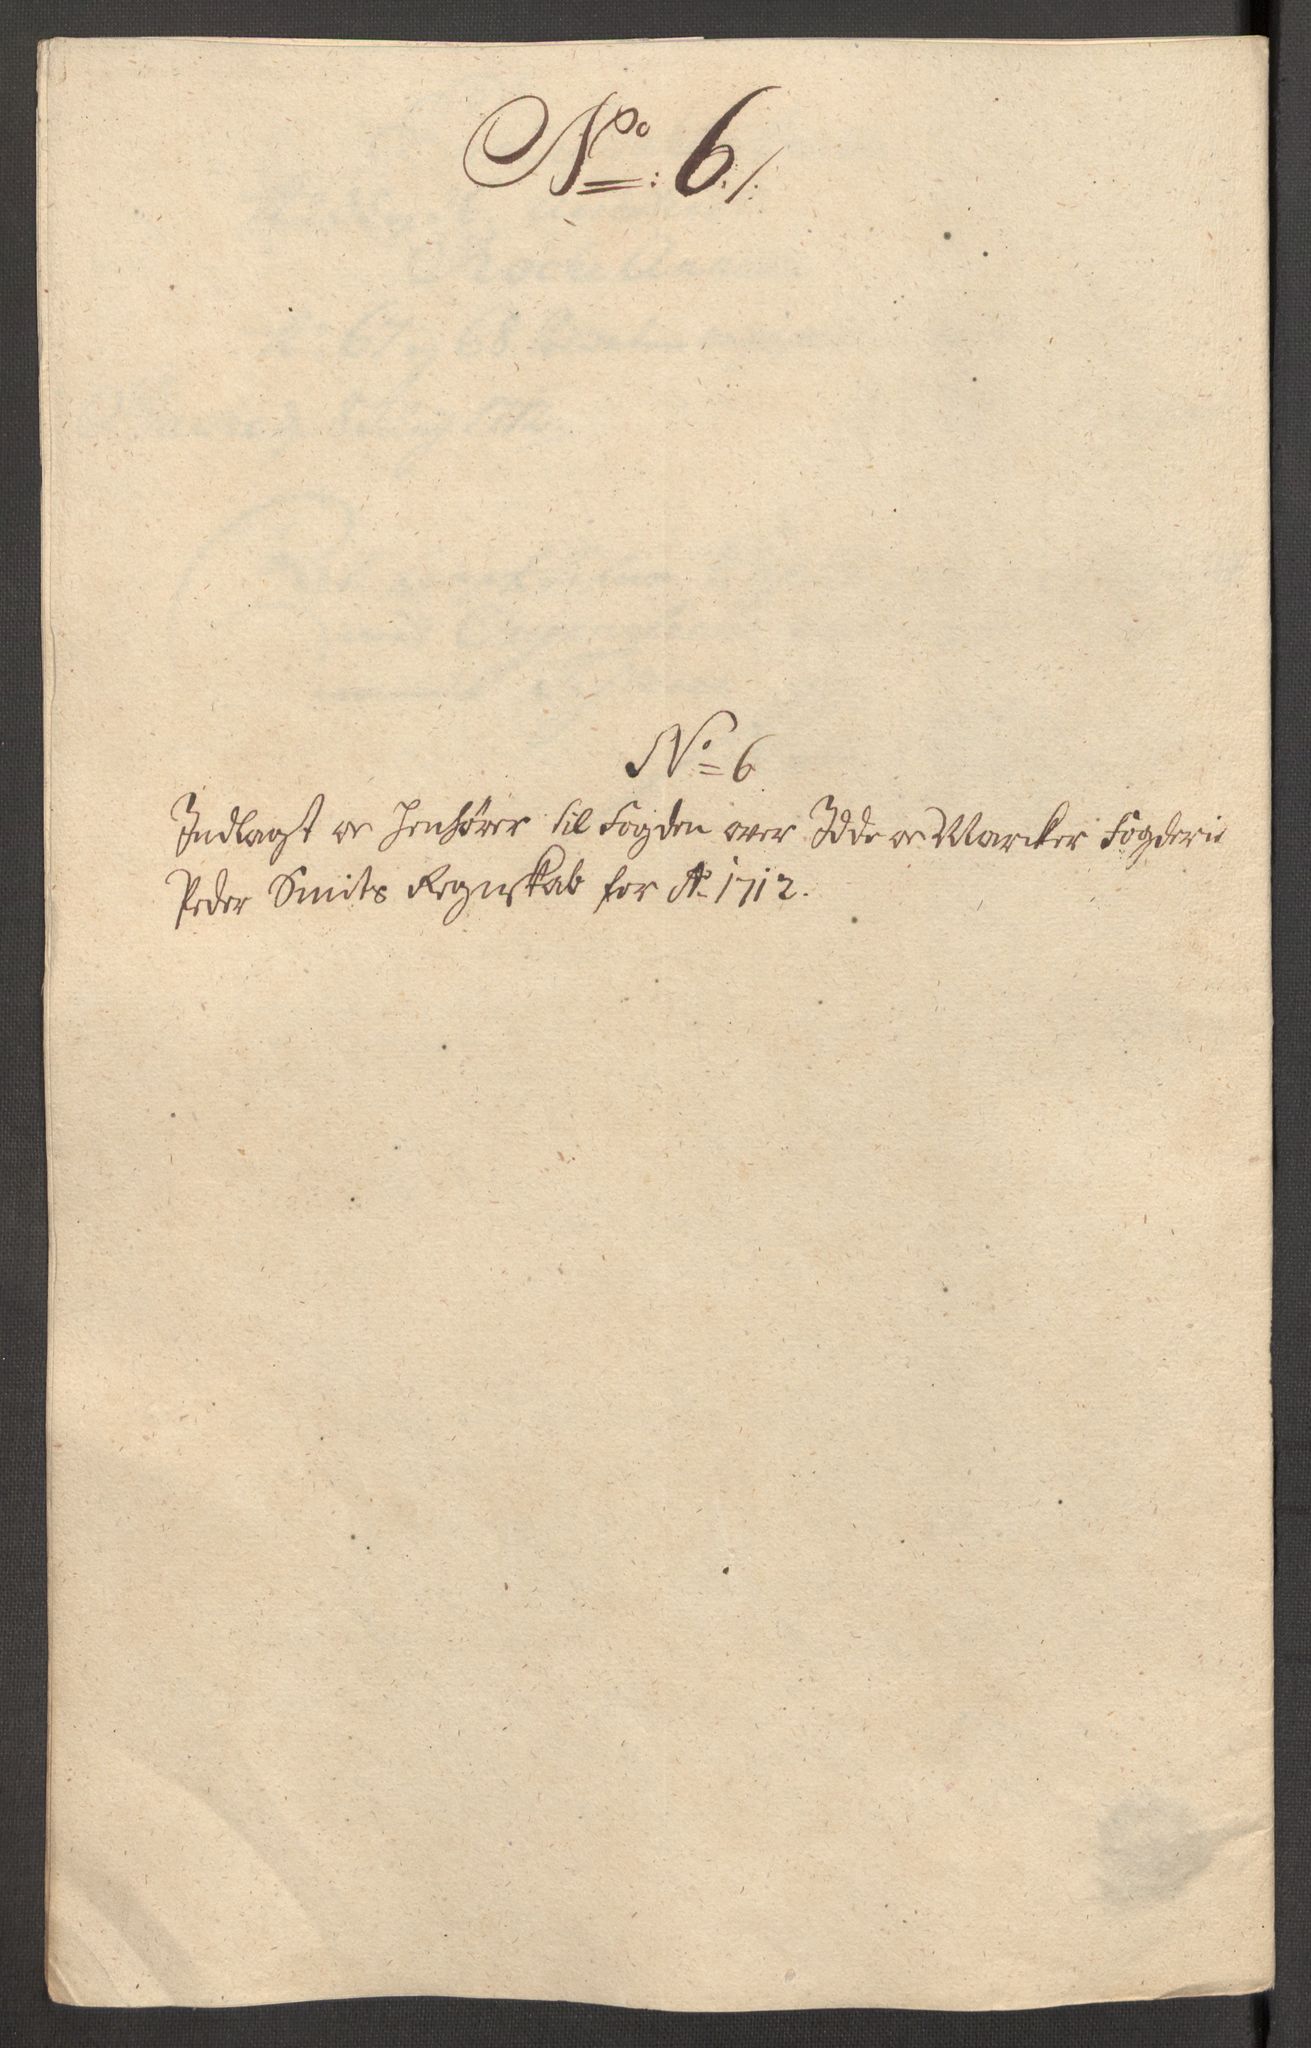 No: 6./.
No 6
Indlagt oc henhører til Fogden over Idde oc Marcker Fogderie
Peder Smits Regnskab for Ao 1712.